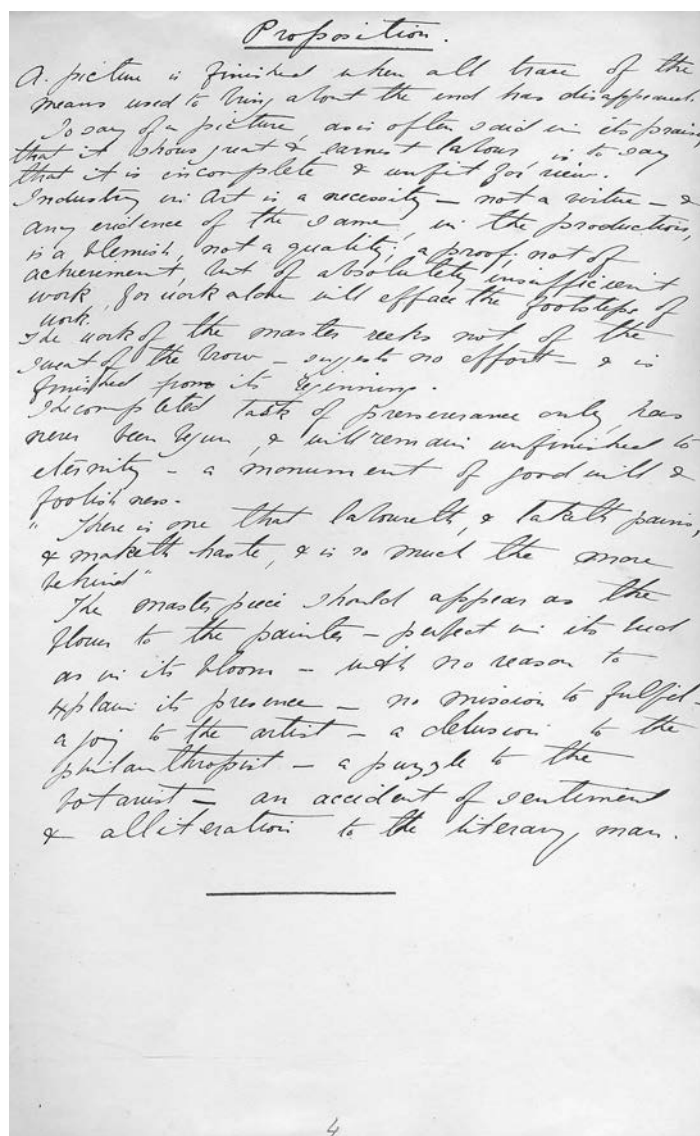 Proposition.
A picture is finished when all trace of the
means used to bring about the end has disappeared.
To say of a picture, as is often said in its praise,
that it shows great & earnest labour, is to say
that it is incomplete & unfit for view.
Industry in Art is a necessity – not a virtue – &
any evidence of the same, in the production,
is a blemish, not a quality; a proof, not of
achievement, but of absolutely insufficient
work, for work alone will efface the footsteps of
work.
The work of the master reeks not of the
sweat of the brow – suggests no effort – & is
finished from its beginning.
The completed task of perseverance only, has
never been begun, & will remain unfinished to
eternity – a monument of goodwill &
foolishness.
"There is one that laboureth, & taketh pains,
& maketh haste, & is so much the more
behind"
The masterpiece should appear as the
flower to the painter – perfect in its bud
as in its bloom – with no reason to
explain its presence – no mission to fulfil –
a joy to the artist – a delusion to the
philanthropist – a puzzle to the
botanist – an accident of sentiment
& alliteration to the literary man.
4